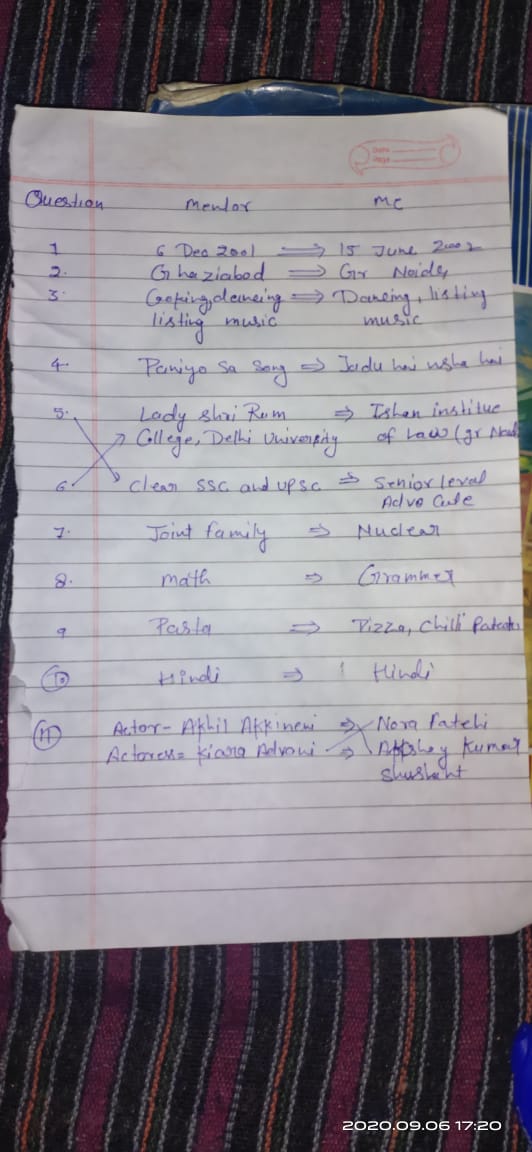 Date
Page
Question Mentor MC
1 6 Dec 2001 ⇒ 15 June 2002
2. Ghaziabad ⇒ Gr Noida
3. Cooking, dancing ⇒ Dancing, listing
listing music music
4. Paniyo Sa Song ⇒ Jadu hai nsha hai
5. Lady Shri Ram ⇒ Ishan institue
College, Delhi University of Law (gr Noid
6 Clear SSC and UPSC ⇒ Senior level
Advo Cate
7. Joint family ⇒ Nuclear
8. math ⇒ Grammer
9 Pasta ⇒ Pizza, Chilli
10 Hindi ⇒ Hindi
11 Actor- Akhil Akkineni ⇒ Nora Fatehi
Actoress= Kiara Advani ⇒ Akshay Kumar
Shushant
2020.09.06 17:20